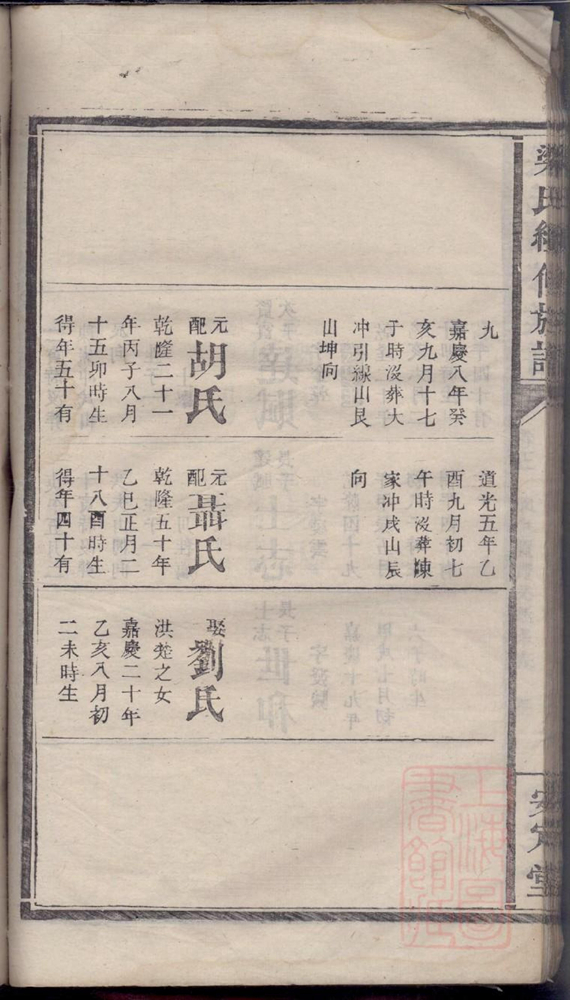 梁氏續修族譜
安定堂
九
嘉慶八年癸
亥九月十七
子時沒葬大
冲引線山艮
山坤向
元配胡氏
乾隆二十一
年丙子八月
十五卯時生
得年五十有
道光五年乙
酉九月初七
午時沒葬陳
家冲戌山辰
向
元配聶氏
乾隆五十年
乙巳正月二
十八酉時生
得年四十有
娶劉氏
洪之女
嘉慶二十年
乙亥八月初
二未時生
上海圖書館藏